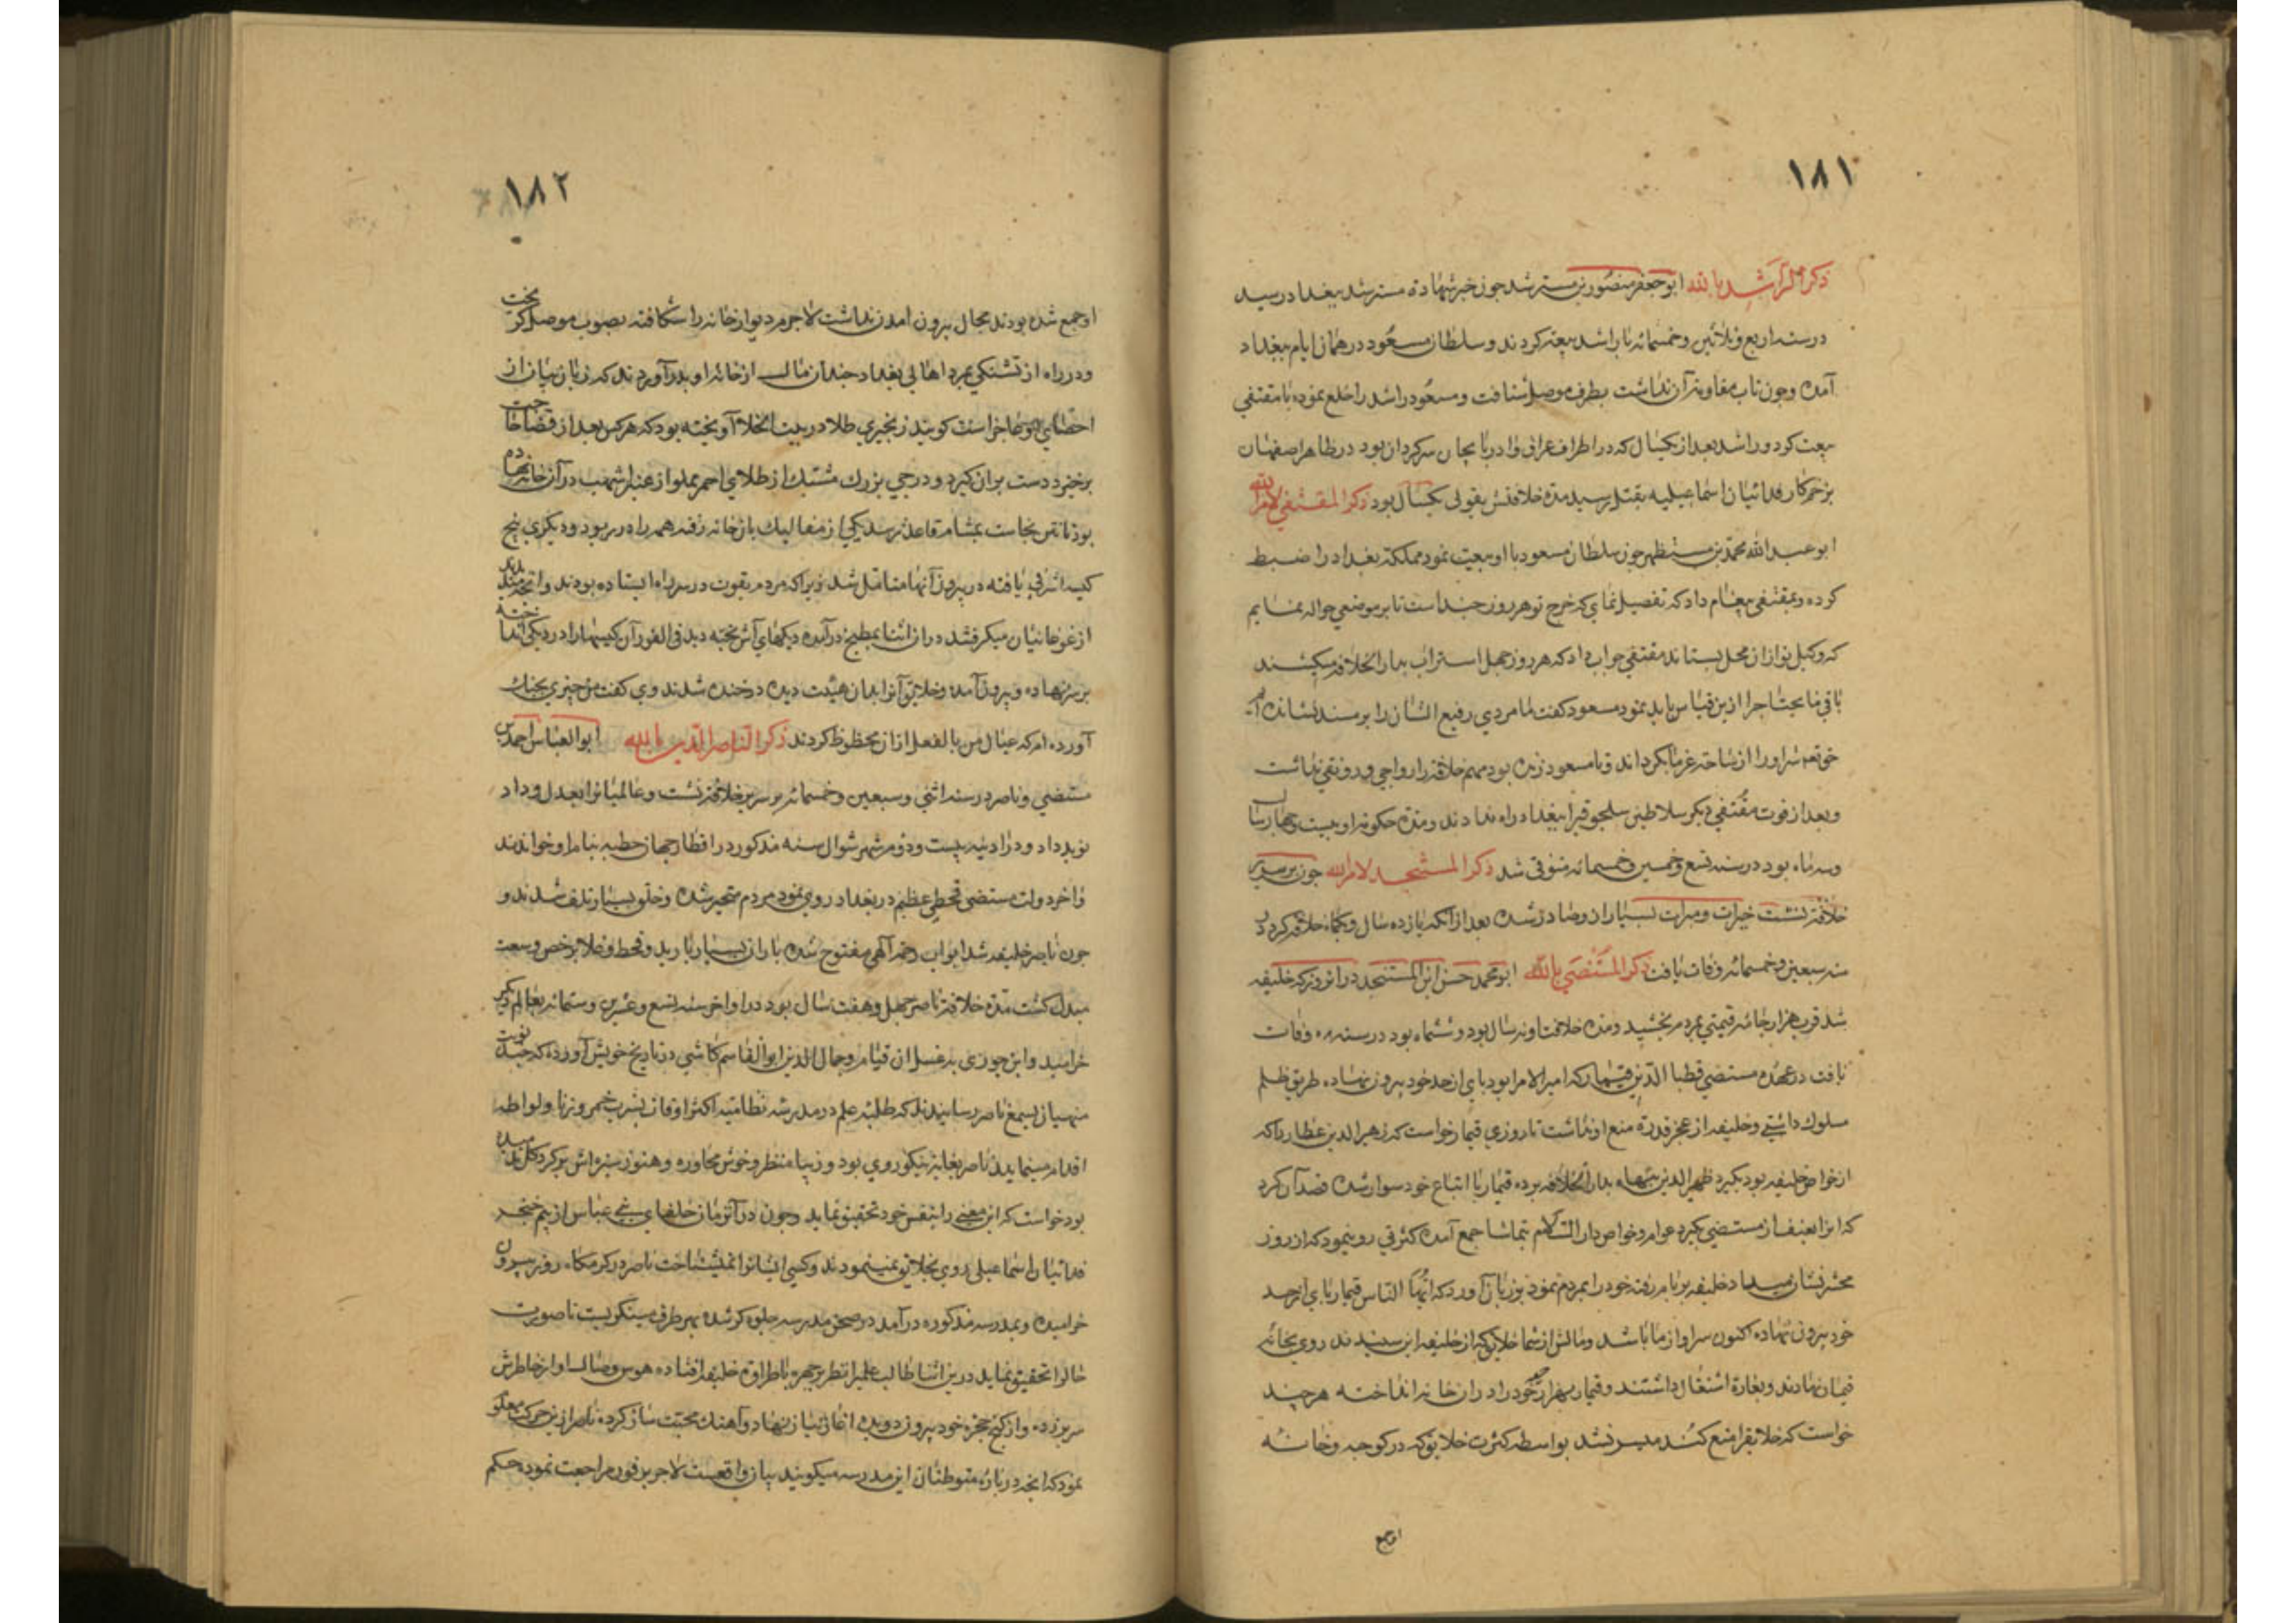 ١٨١
ذکر الراشد بالله ابو جعفر منصور بن مسترشد جون خبر شهادة مسترشد ببغداد رسید
در سنه اربع و ثلاثین و خمسمائه با راشد بیعة کردند و سلطان مسعود در همان ایام ببغداد
آمده و جون تاب مقاومة آن نداشت بطرف موصل شتافت و مسعود راشد را خلع نموده با مقتفی
بیعت کرد و راشد بعد از یکسال که در اطراف عراق و ادربایجان سرکردان بود در ظاهر اصفهان
بزخم کارد فدائیان اسماعیلیه بقتل رسید مدة خلافتش بقولی یکسال بود ذکر المقتفی لامرالله
ابو عبد الله محمد بن مستظهر جون سلطان مسعود با او بیعت نمود مملکة بغداد را ضبط
کرده و بمقتفی پیغام داد که تفصیل نمای که خرج تو هر روز جند است تا بر موضعی حواله نمایم
که وکیل تو ازان محل بستاند مقتفی جواب داد که هر روز جهل استر آب بدار الخلافه میکشند
باقی ما یحتاج را ازین قیاس باید نمود مسعود کفت ما مردی رفیع الشان را بر مسند نشانده ایم
خدا شر او را از ساحت ما بکرداند و تا مسعود زنده بود مهم خلافة را رواجی و رونقی نداشت
و بعد از فوت مقتفی دیکر سلاطین سلجوقیرا ببغداد راه ندادند و مدة حکومة او بیست و جهار سال
و سه ماه بود در سنه تسع و خمسین و خمسمائه متوفی شد ذکر المستنجد لامرالله جون بر سریر
خلافة نشست خیرات و مبرات بسیار از و صادر شده بعد از آنکه یازده سال و یکماه خلافة کرد در
سنه سبعین و خمسمائه وفات یافت ذکر المستضی بالله ابو محمد حسن ابن المستنجد در انروز که خلیفه
شد قرب هزار جامه قیمتی بمردم بخشید و مدة خلافت او نه سال بود و ششماه بود در سنه وفات
یافت در عهده مستضی قطبا الدین قیمار که امیر الامرا بود پای از حد خود بیرون نهاده طریق ظلم
مسلوک داشتی و خلیفه از عجز قدرة منع او نداشت تا روزی قیمار خواست که ظهیر الدین عطار را که
از خواص خلیفه بود بکیرد ظهیر الدین پناه بدار الخلافه برده قیمار با اتباع خود سوار شده قصد آن کرد
که او را بعنف از مستضی بکیرد عوام و خواص دار السلام بتماشا جمع آمده کثرتی رو نمود که از روز
محشر نشان میداد خلیفه بر بام رفته خود را بمردم نمود بر زبان آورد که ایها الناس قیمار پای از حد
خود بیرون نهاده اکنون سر او از ما باشد و مالش از شما خلایق که از خلیفه این سخن شنیدند روی بخانه
قیمار نهادند و بغارة اشتغال داشتند و قیمار بهزار خود را دران خانه انداخته هر جند
خواست که خلایقرا منع کند میسر نشد بواسطه کثرت خلایق که در کوجه و خانه
او جمع
١٨٢
او جمع شده بودند مجال بیرون امدن نداشت لاجرم دیوار خانه را شکافته بصوب موصل کریخت
و در راه از تشنکی بمرد اهالی بغداد جندان مال از خانه او بدر آوردند که زبان بیان از
احصای آن عاجز است کویند زنجیری طلا در بیت الخلا آویخته بود که هر کس بعد از قضا حاجت
برخیزد دست بران کیرد و درجی بزرک مشبک از طلای احمر مملو از عنبر اشهب در آن خانه نهاده
بود تا نتن نجاست بمشام قاعد نرسد یکی از مفالیک بان خانه رفته همه را در ربود و دیکری پنج
کیسه اشرفی یافته در بیرون آنها متامل شد زیرا که مردم بقوت در سر راه ایستاده بودند و آنجه میدیدند
از غوغائیان میکرفتند دران اثنا بمطبخ در آمده دیکهای آش پخته دید فی الفور آن کیسها را در دیکی انداخته
بر سر نهاده و بیرون آمده و خلایق آنرا بدان هیئت دیده در خنده شدند وی کفت من جیزی بجنک
آورده ام که عیال من بالفعل ازان محظوظ کردند ذکر الناصر الدین بالله ابو العباس احمد بن
مستضی و ناصر در سنه اثنی و سبعین و خمسمائه بر سریر خلافة نشست و عالمیانرا بعدل و داد
نوید داد و در ادینه بیست و دوم شهر شوال سنه مذکور در اقطار جهان خطبه بنام او خواندند
و اخر دولت مستضی قحطی عظیم در بغداد روی نمود مردم متحیر شده و خلق بسیار تلف شدند و
جون ناصر خلیفه شد ابواب رحمة آلهی مفتوح شده باران بسیار بارید و قحط و غلا برخص و سعت
مبدل کشت مدة خلافة ناصر جهل و هفت سال بود در اواخر سنه تسع و عشرین و ستمائه بعالم دیکر
خرامید و ابن جوزی به غسل ان قیام و جمال الدین ابو القاسم کاشی در تاریخ خویش آورده که جند نوبت
منهیان بسمع ناصر رسانیدند که طلبه علم در مدرسه نظامیه اکثر اوقات بشرب خمر و زنا و لواطه
اقدام مینمایند ناصر بغایة نیکو روی بود و زیبا منظر و خوش محاوره و هنوز سبزه اش بر کرد کل ندمیده
بود خواست که این معنی را بنفس خود تحقیق نماید و جون در آنزمان خلفای بنی عباس از بیم خنجر
فدائیان اسماعیلی روی بخلایق نمینمودند و کسی ایشانرا نمیشناخت ناصر در کرمکاه روز بیرون
خرامیده و بمدرسه مذکوره در آمد در صحن مدرسه جلوه کر شده بهر طرف مینکریست تا صورت
حالرا تحقیق نماید درین اثنا طالب علمیرا نظر بر جهره باطراوة خلیفه افتاده هوس وصال او از خاطرش
سر بر زده و از کنج حجره خود بیرون دویده اغاز نیاز نهاد و آهنک محبت ساز کرده ناصر ازین حرکت معلوم
نمود که انجه در باره متوطنان این مدرسه میکویند بیان واقعیست لاجرم بر فور مراجعت نموده حکم